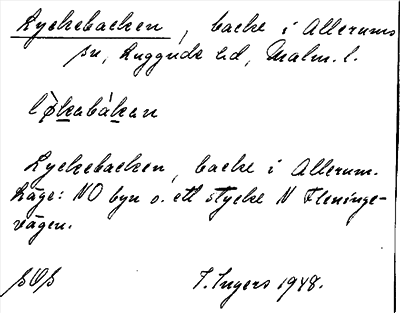 Lyckebacken, backe i Allerums
sn, Luggude hd, Malm. l.
løkabàkan
Lyckebacken, backe i Allerum.
Läge: NO byn o. ett stycke N Fleninge-
vägen.
SOS I. Ingers 1948.